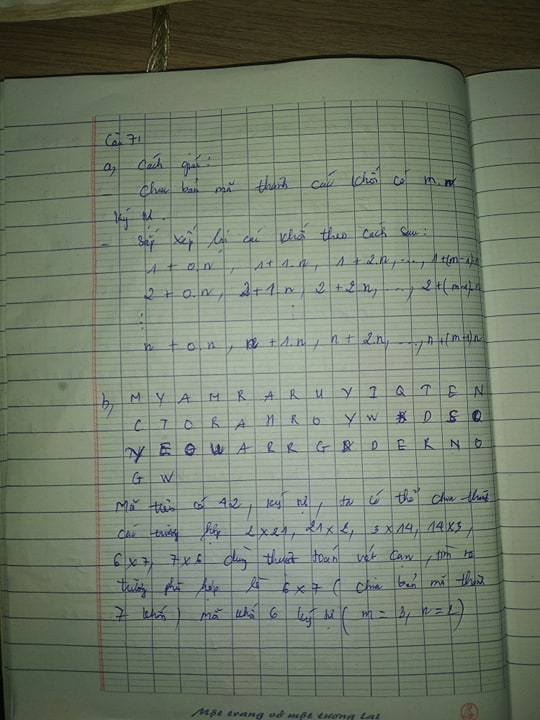 Câu 7,
a, Cách giải:
Chia bản mã thành các khối có m.n
ký tự.
- Sắp xếp lại các khối theo cách sau:
1 + 0.n, 1+1.n, 1 + 2.n, ..., 1+(m-1).n
2 + 0.n, 2+1.n, 2 + 2.n, ..., 2+(m-1).n
⋮ ⋮
n + 0.n, n+1.n, n + 2.n, ..., n+(m-1)n
b, M Y A M R A R U Y I Q T E N
C T O R A H R O Y W D S O
Y E O U A R R G D E R N O
G W
Mã trên có 42, ký tự, ta có thể chia thành
các trường hợp 2x21, 21x2, 3x14, 14x3,
6x7, 7x6 dùng thuật toán vét cạn, tìm ra
trường phù hợp là 6x7 ( chia bản mã thành
7 khối) mã khối 6 ký tự ( m = 3, n=2)
Một trang vở một tương lai